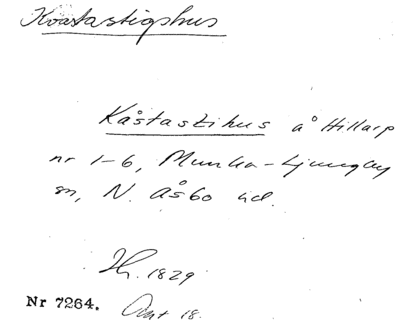 Kvastastigshus
Kåstastihus å Hillarp
nr 1-6, Munka-Ljungby
sn, N. Åsbo hd.
Hr. 1829
Nr 7264. 18.